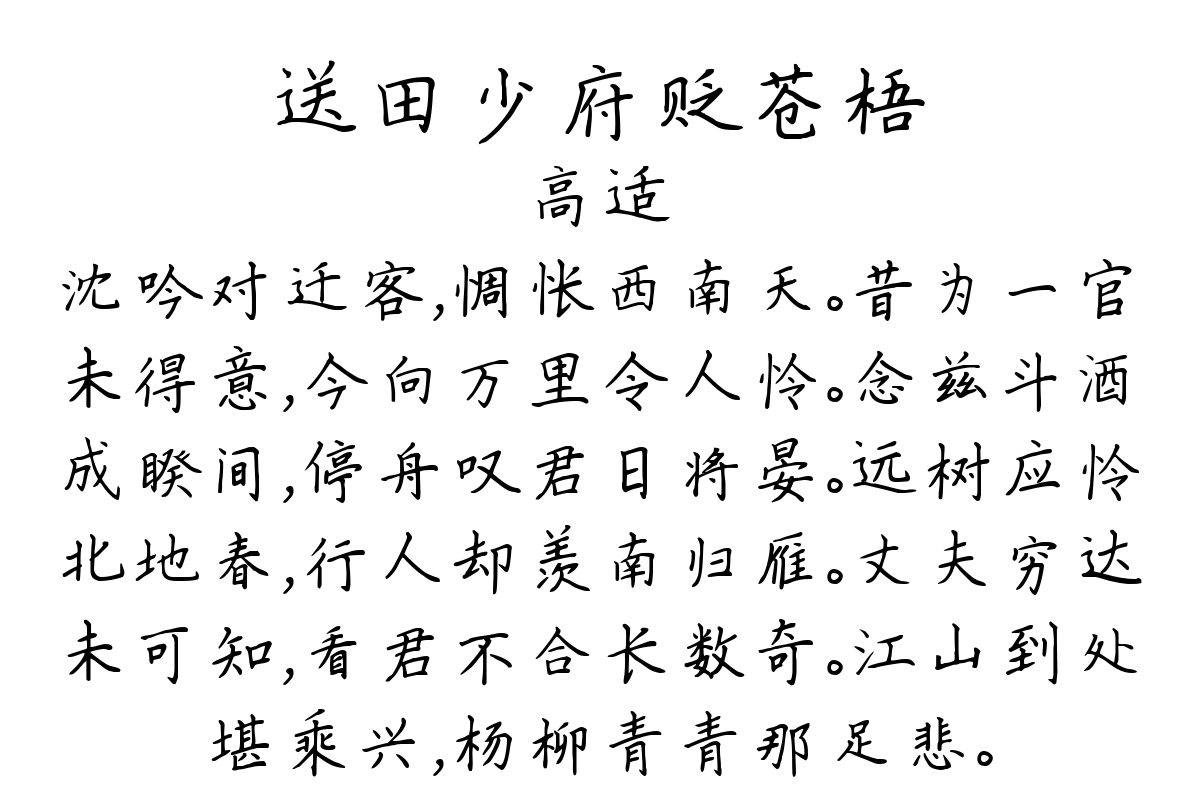 送田少府贬苍梧
高适
沈吟对迁客,惆怅西南天。昔为一官
未得意,今向万里令人怜。念兹斗酒
成睽间,停舟叹君日将晏。远树应怜
北地春,行人却羡南归雁。丈夫穷达
未可知,看君不合长数奇。江山到处
堪乘兴,杨柳青青那足悲。